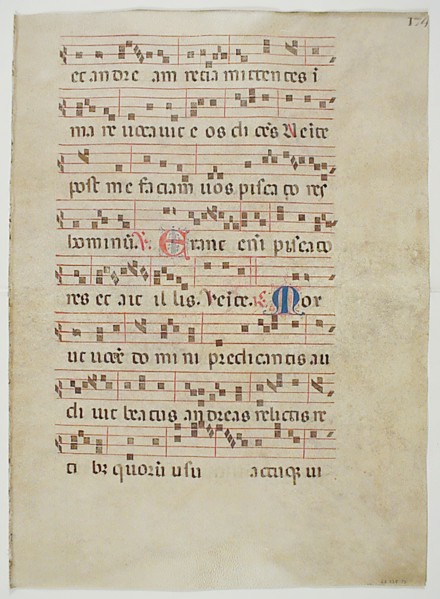 et andre am retia mittentes i
ma re vocavit e os di ces Veíte
post me faciam uos pisca to res
hominū. V. Erant eni piscato
res et ait il lis. Veíte. R. Mox
ut vocē do mi ni predicantis au
di vit beatus andreas relictis re
ti bz quorū usu actuqz ui